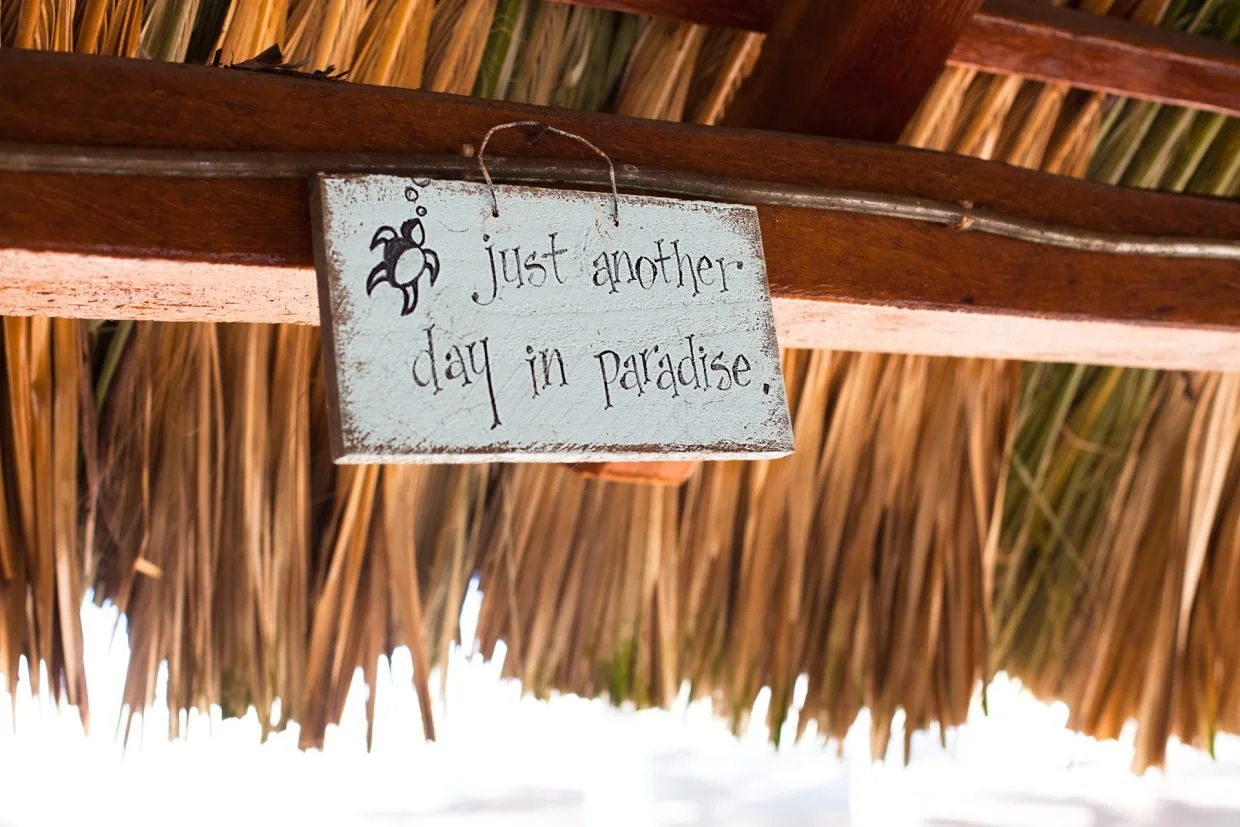 just another
day in paradise.